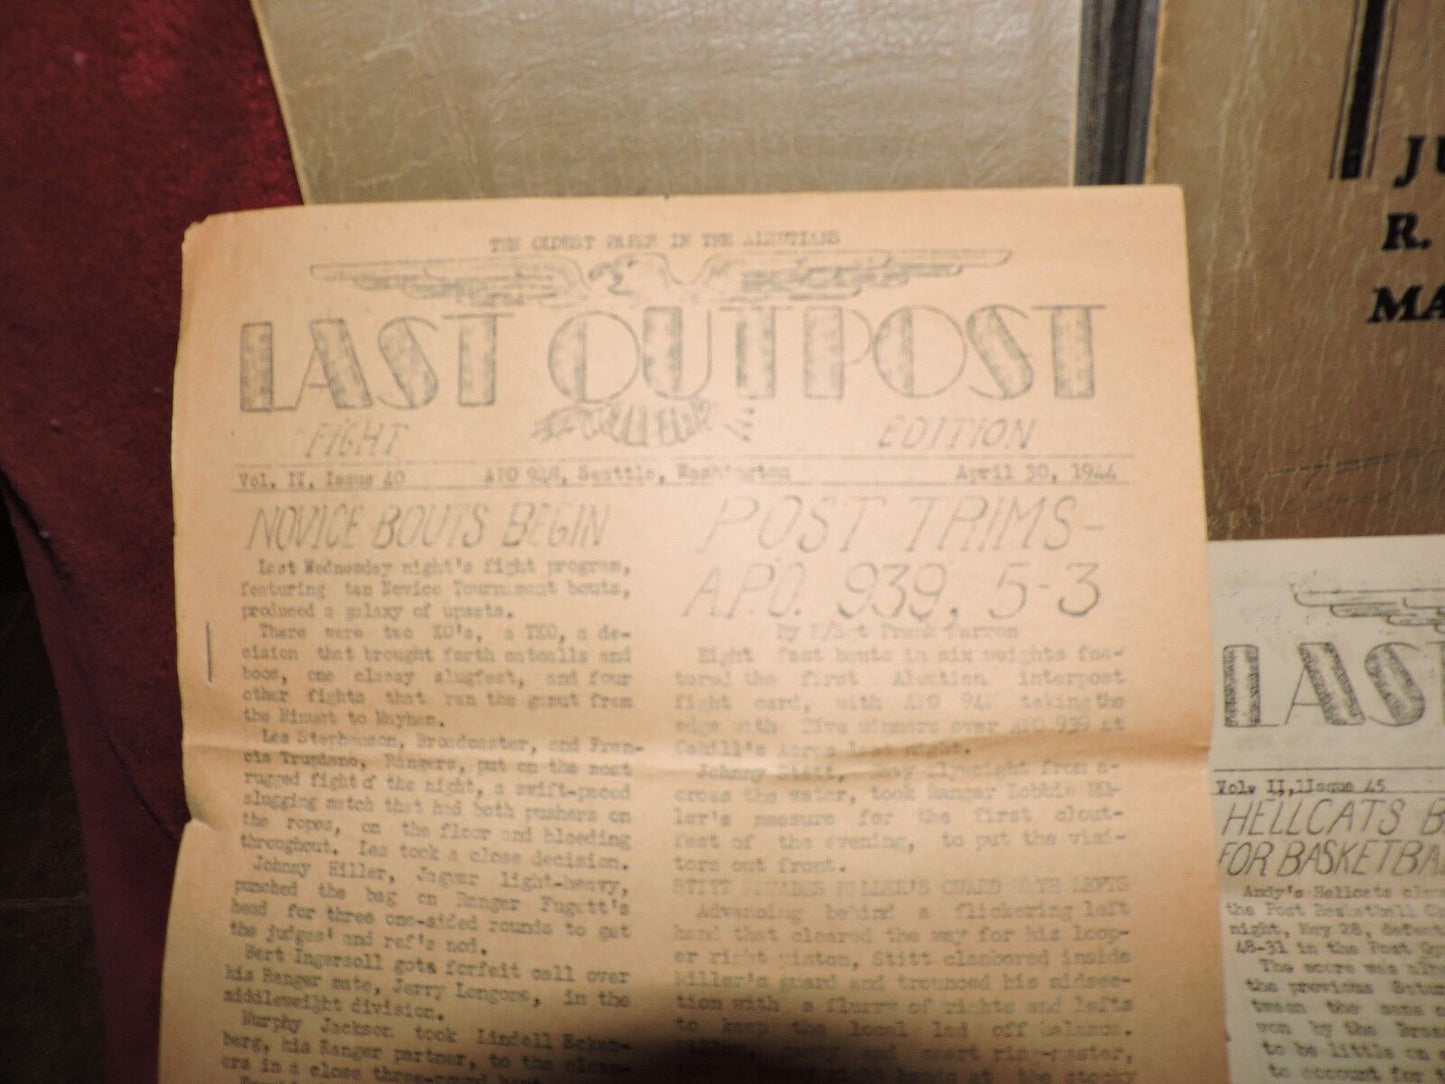 THE OLDEST PAPER IN THE ALEUTIANS
LAST OUTPOST
FIGHT EDITION
Vol. II, Issue 40 APO 948, Seattle, Washington April 30, 1944
NOVICE BOUTS BEGIN
Last Wednesday night's fight program,
featuring ten Novice Tournament bouts,
produced a galaxy of upsets.
There were two KO's, a TKO, a de-
cision that brought forth catcalls and
boos, one classy slugfest, and four
other fights that ran the gamut from
the Minuet to Mayhem.
Les Stephenson, Broadcaster, and Fran-
cis Trupiano, Rangers, put on the most
rugged fight of the night, a swift-paced
slugging match that had both pushers on
the ropes, on the floor and bleeding
throughout. Les took a close decision.
Johnny Hiller, Jaguar light-heavy,
punched the bag on Ranger Fugett's
head for three one-sided rounds to get
the judges' and ref's nod.
Bert Ingersoll gots forfeit call over
his Ranger mate, Jerry Longore, in the
middleweight division.
Murphy Jackson took Lindell Ecken-
berg, his Ranger partner, to the clean-
ers in a close three-round
POST TRIMS-
A.P.O. 939, 5-3
By T/Sgt Frank
Eight fast bouts in six weights fea-
tured the first Aleutian interpost
fight card, with APO 948 taking the
edge with five winners over APO 939 at
Cahill's Acres last night.
Johnny Stitt, Navy flyweight from a-
cross the water, took Ranger Bobbie Mil-
ler's measure for the first clout-
fest of the evening, to put the visi-
tors out front.
STITT EVADES MILLER'S GUARD WITH LEFTS
Advancing behind a flickering left
hand that cleared the way for his loop-
er right piston, Stitt clambered inside
Miller's guard and trounced his midsec-
tion with a flurry of rights and lefts
to keep the local lad off balance.
Miller, and smart ring-master,
hands at the stocky
JU
R.
MA
LAS
Vol. II, Issue 45
HELLCATS B
FOR BASKETBA
Andy's Hellcats
the Post Basketball
night, May 28,
48-31 in the Post
The score was
the previous
tween the
won by the
to be little on
to account for